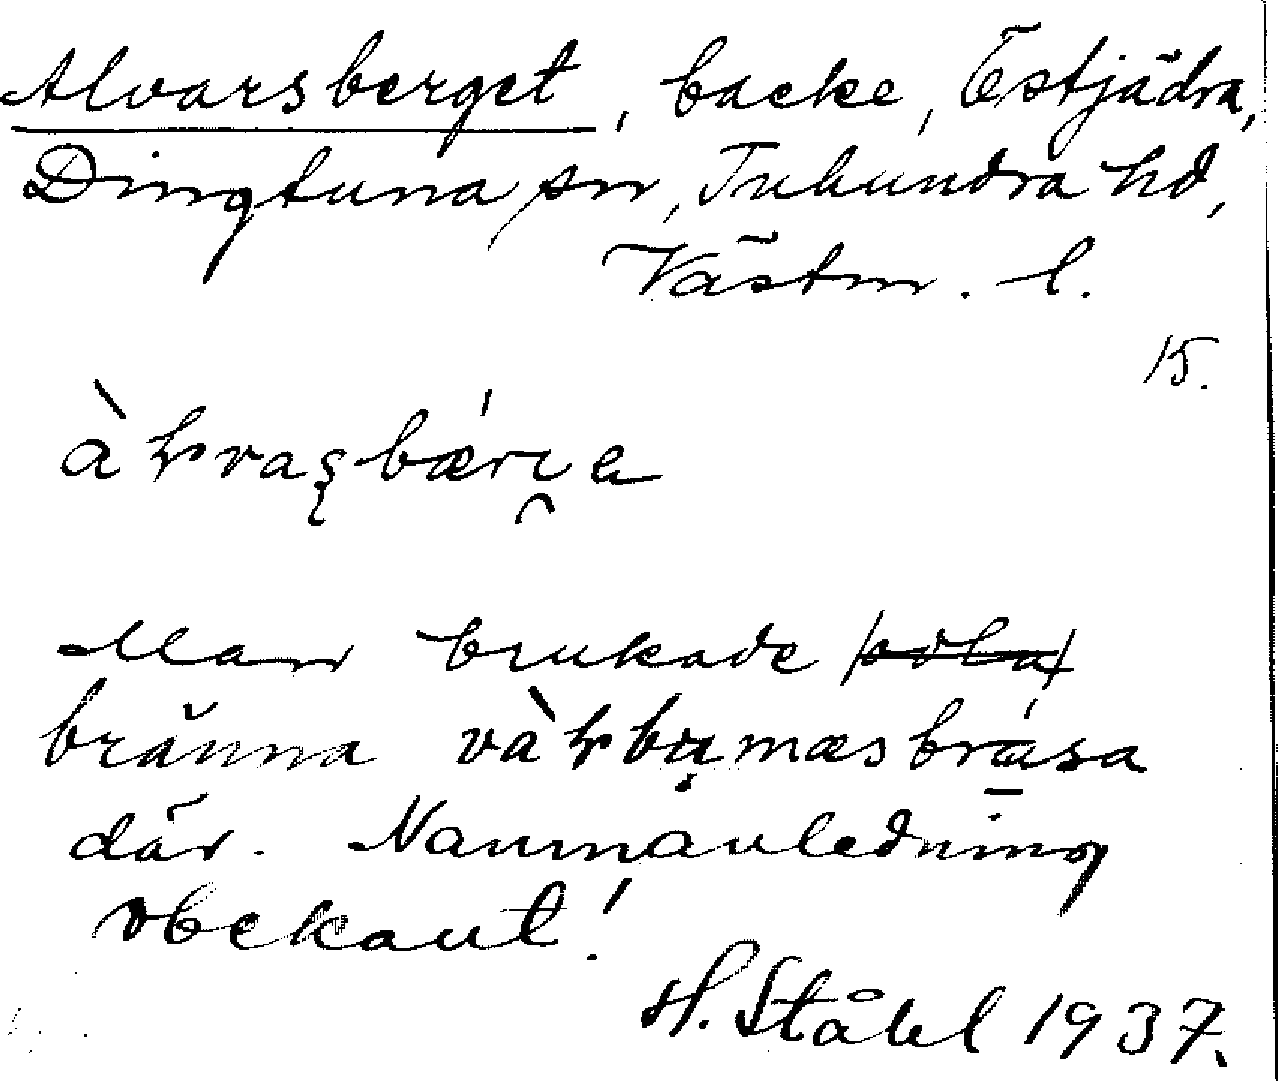 Alvarsberget, backe, Östjädra,
Dingtuna sn, Tuhundra hd,
Västm. l.
15.
Man brukade
bränna
där. Namnanledning
obekant!
H. Ståhl 1937.